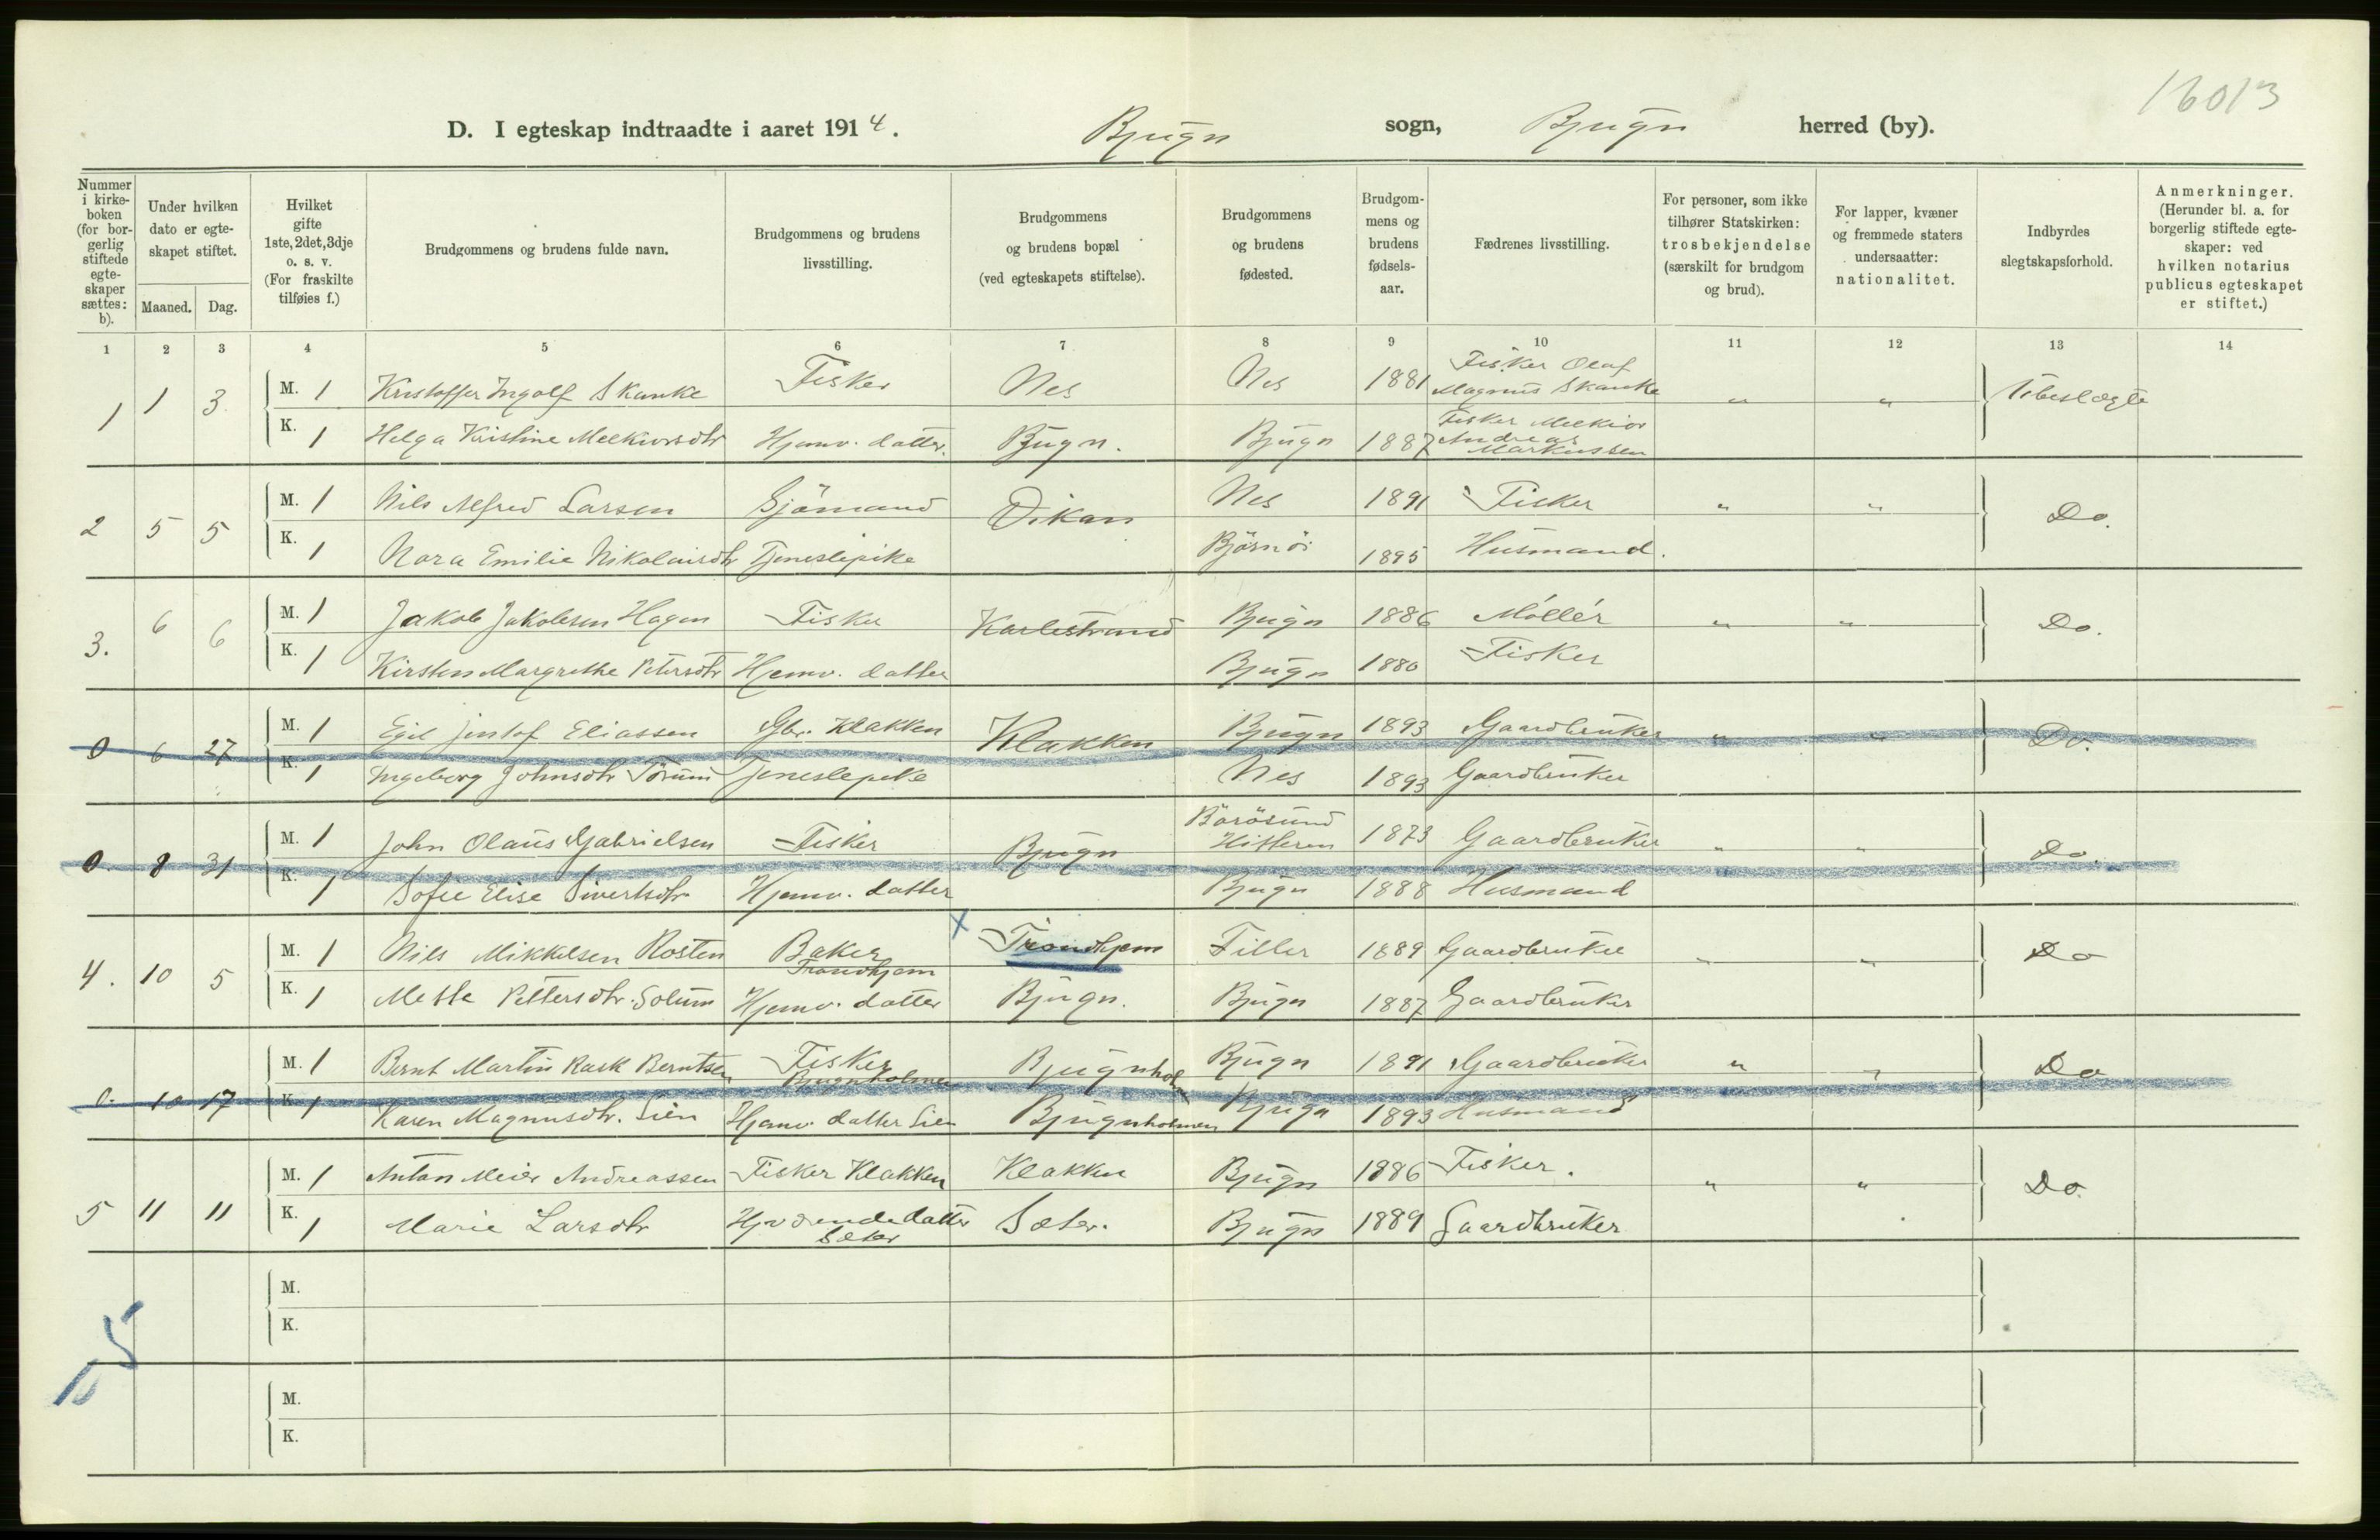 16013
D. I egteskap indtraadte i aaret 1914. Bjugn sogn, Bjugn herred (by).
Nummer i kirke-boken (for bor-gerlig stiftede egte-skaper sættes: b).
Under hvilken dato er egte-skapet stiftet.
Maaned. Dag.
Hvilket gifte 1ste, 2det, 3dje o. s. v. (For fraskilte tilføies f.)
Brudgommens og brudens fulde navn.
Brudgommens og brudens livsstilling.
Brudgommens og brudens bopæl (ved egteskapets stiftelse).
Brudgommens og brudens fødested.
Brudgom-mens og brudens fødsels-aar.
Fædrenes livsstilling.
For personer, som ikke tilhører Statskirken: trosbekjendelse (særskilt for brudgom og brud).
For lapper, kvæner og fremmede staters undersaatter: nationalitet.
Indbyrdes slegtskapsforhold.
Anmerkninger. (Herunder bl. a. for borgerlig stiftede egte-skaper: ved hvilken notarius publicus egteskapet er stiftet.)
1 2 3 4 5 6 7 8 9 10 11 12 13 14
1 1 3. M. 1 Kristoffer Ingolf Skanke Fisker Nes Nes 1881 Fisker Olaf Magnus Skanke " " Ubeslægte
K. 1 Helga Kristine Melkiorsdtr Hjemv. datter. Bjugn. Bjugn 1887 Fisker Melkior Andreas Markussen
2 5 5 M. 1 Nils Alfred Larsen Sjömand Nes 1891 Fisker " " Do.
K. 1 Nora Emilie Nikolaisdtr Tjenestepike Björnör 1895 Husmand.
3. 6 6 M. 1 Jakob Jakobsen Hagen Fisker Karlestrand Bjugn 1886 Möller " " Do.
K. 1 Kirsten Margrethe Petersdtr Hjemv. datter Bjugn 1880 Fisker
0 6 27 M. 1 Egil Eliassen Gbr. Klakken Klakken Bjugn 1893 Gaardbruker " " Do.
K. 1 Ingeborg Johnsdtr Tjenestepike Nes 1893 Gaardbruker
0. 8 31 M. 1 John Olaus Gabrielsen Fisker Bjugn Börösund Hitteren 1873 Gaardbruker " " Do.
K. 1 Sofie Elise Sivertsdtr Hjemv. datter Bjugn 1888 Husmand
4. 10 5 M. 1 Nils Mikkelsen Rosten Baker Trondhjem x Trondhjem Tiller 1889 Gaardbruker " " Do
K. 1 Mette Pettersdtr. Solum Hjemv. datter Bjugn. Bjugn 1887 Gaardbruker
0. 10 17 M. 1 Bernt Martin Rask Berntsen Fisker Bjugnholmen Bjugnholm Bjugn 1891 Gaardbruker " " Do
K. 1 Karen Magnusdtr. Lien Hjemv. datter Lien Bjugnholmen Bjugn 1893 Husmand
5 11 11 M. 1 Anton Meier Andreassen Fisker Klakken Klakken Bjugn 1886 Fisker. " " Do.
K. 1 Marie Larsdtr datter Sæter Sæter. Bjugn 1889 Gaardbruker
M.
K.
5
M.
K.